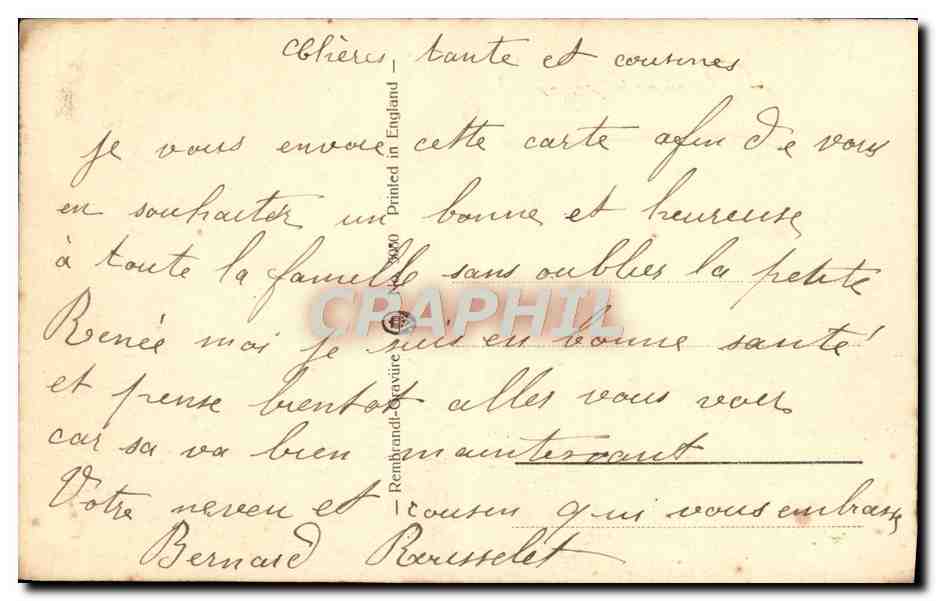 Chères, tante et cousines
je vous envoie cette carte afin de vous
en souhaiter un bonne et heureuse
à toute la famille sans oublier la petite
Renée moi je suis en bonne santé
et pense bientot aller vous voir
car sa va bien maintenant
Votre neveu et cousin qui vous embrasse
Bernard Rousselet
— Rembrandt-Gravüre No. 5050 Printed in England —
CRAPHIL